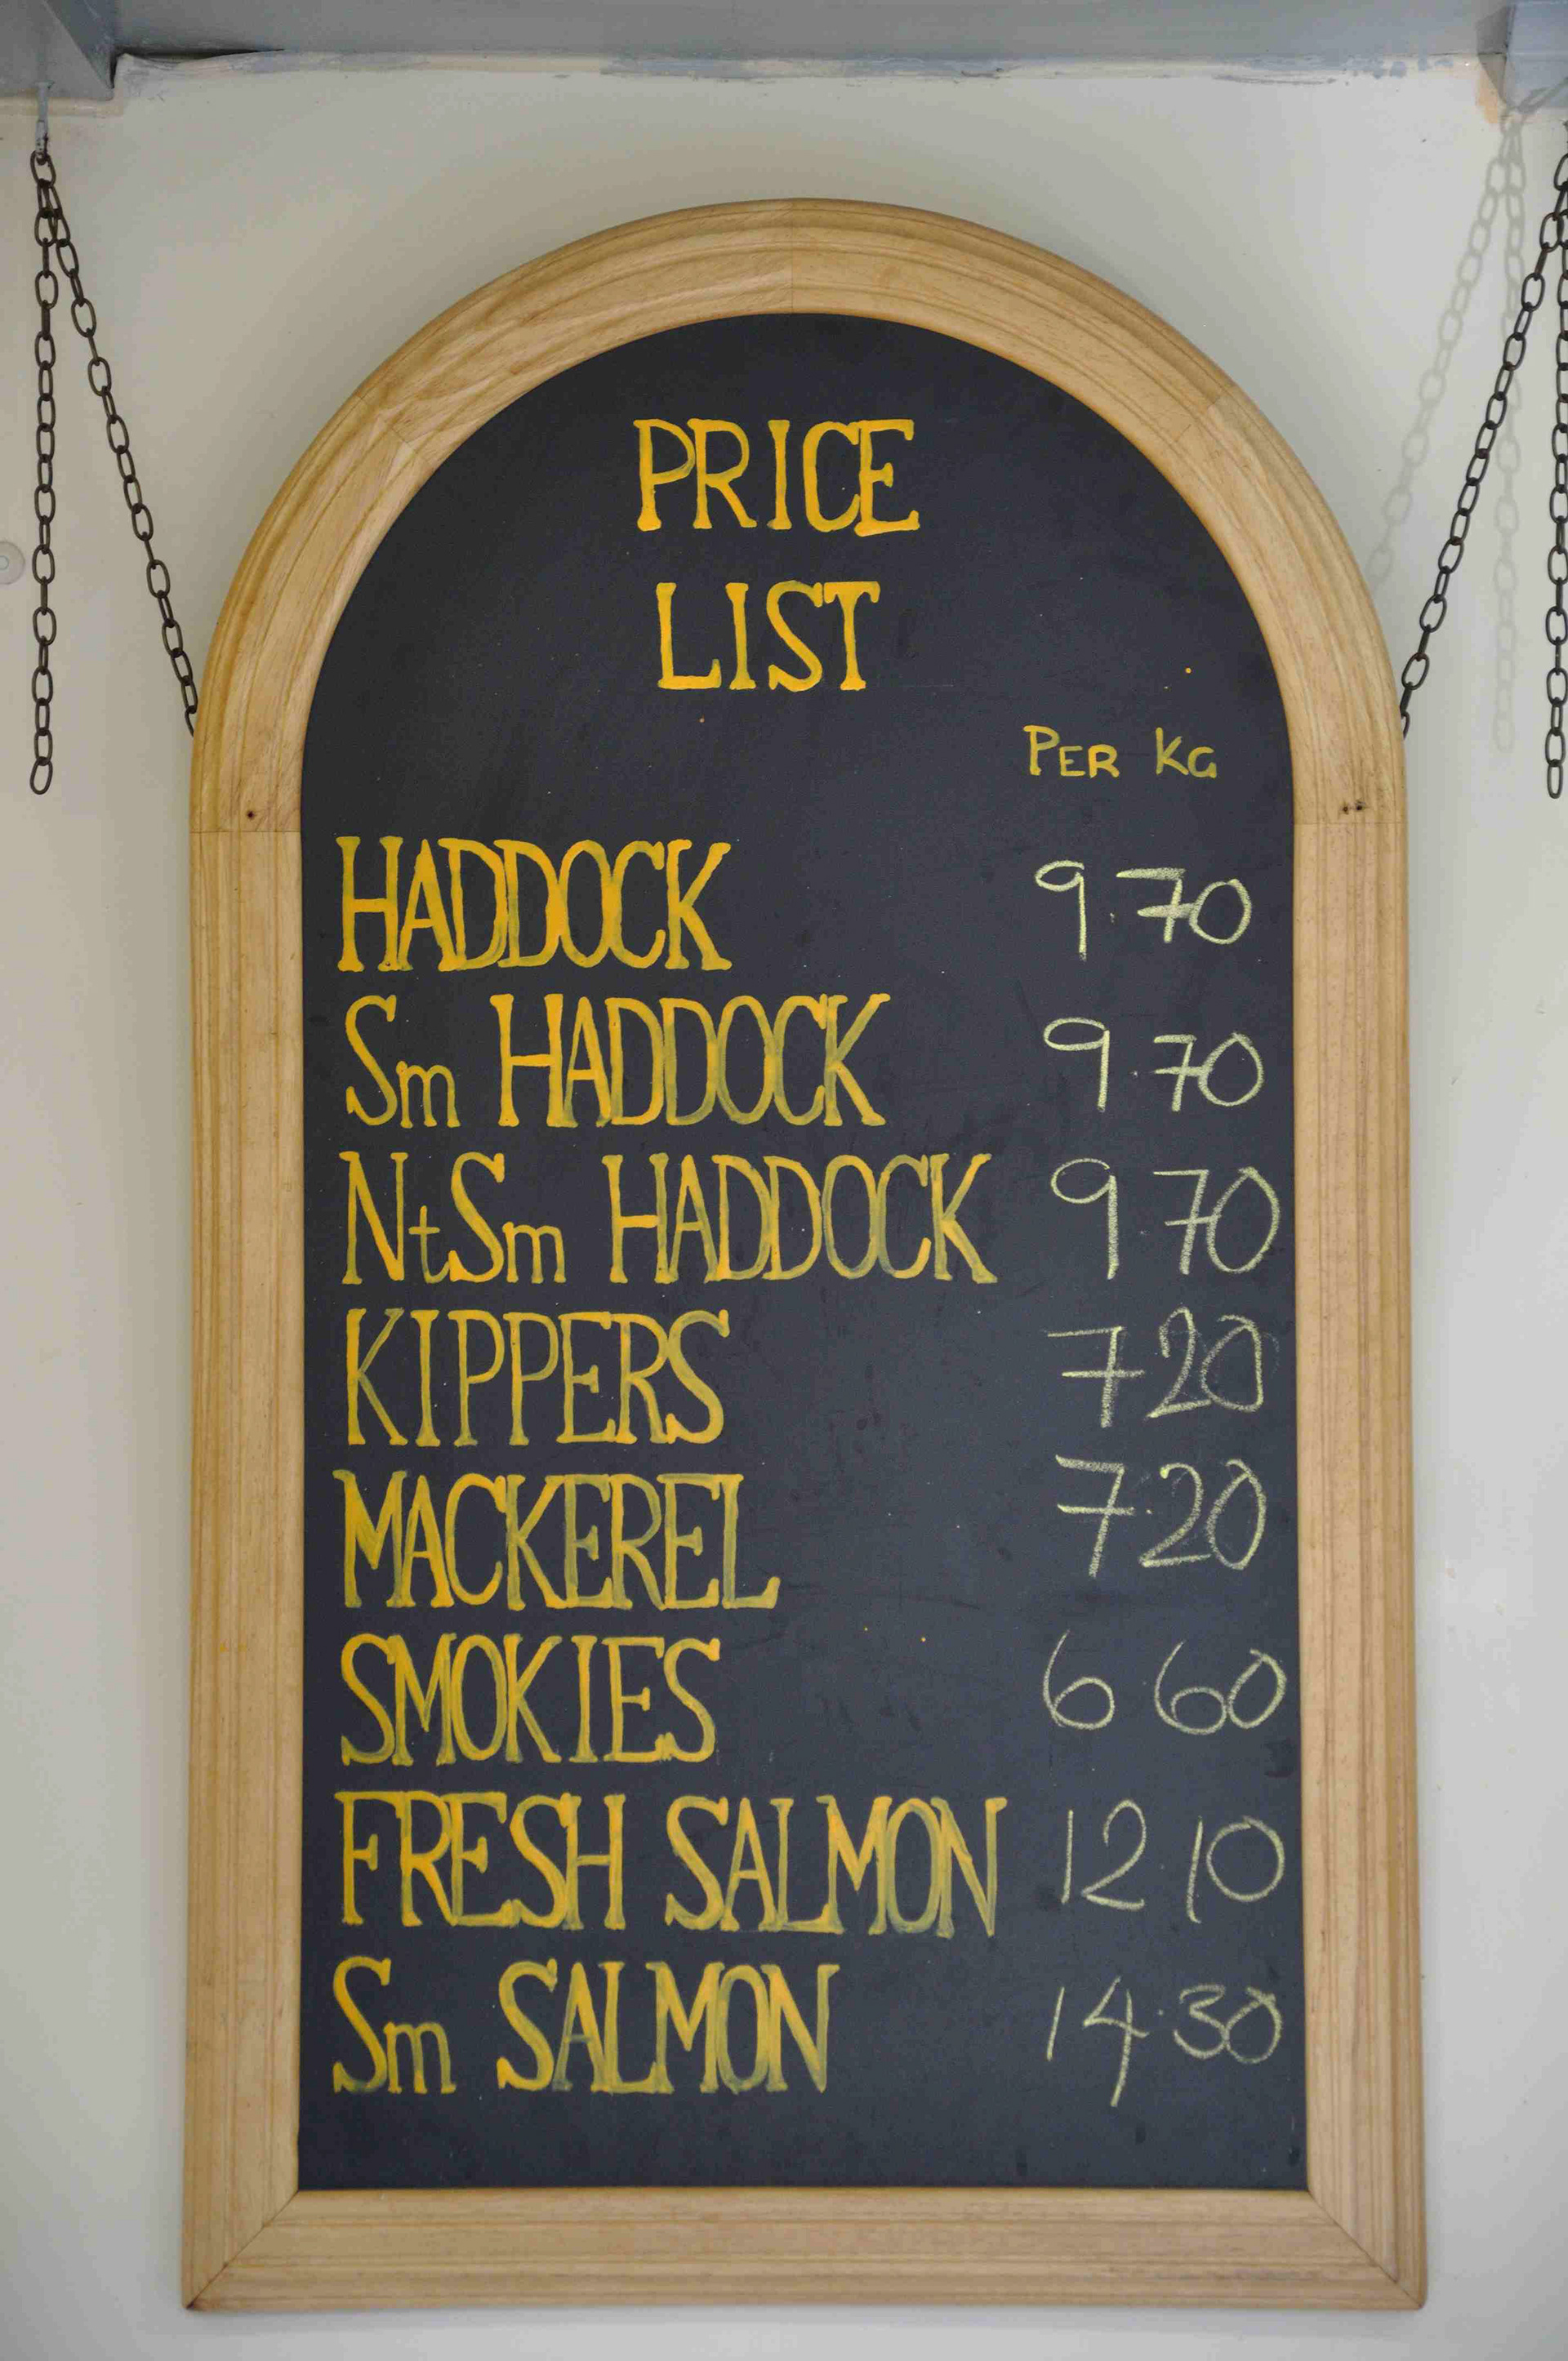 PRICE
LIST
PER KG
HADDOCK 9.70
Sm HADDOCK 9.70
NtSm HADDOCK 9 70
KIPPERS 7 20
MACKEREL 7.20
SMOKIES 6 60
FRESH SALMON 12.10
Sm SALMON 14.30